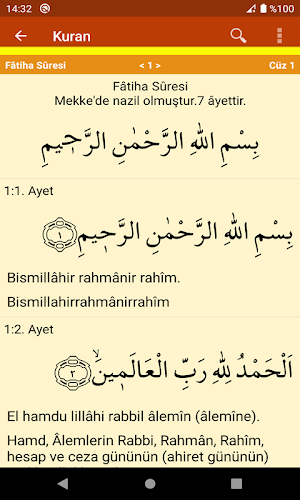 14:32 %100
Kuran
Fâtiha Sûresi < 1 > Cüz 1
Fâtiha Sûresi
Mekke'de nazil olmuştur.7 âyettir.
بِسْمِ اللهِ الرَّحْمٰنِ الرَّحٖيمِ
1:1. Ayet
بِسْمِ اللهِ الرَّحْمٰنِ الرَّحٖيمِ ﴿١﴾
Bismillâhir rahmânir rahîm.
Bismillahirrahmânirrahîm
1:2. Ayet
اَلْحَمْدُ لِلّٰهِ رَبِّ الْعَالَمٖينَۙ ﴿٢﴾
El hamdu lillâhi rabbil âlemîn (âlemîne).
Hamd, Âlemlerin Rabbi, Rahmân, Rahîm,
hesap ve ceza gününün (ahiret gününün)